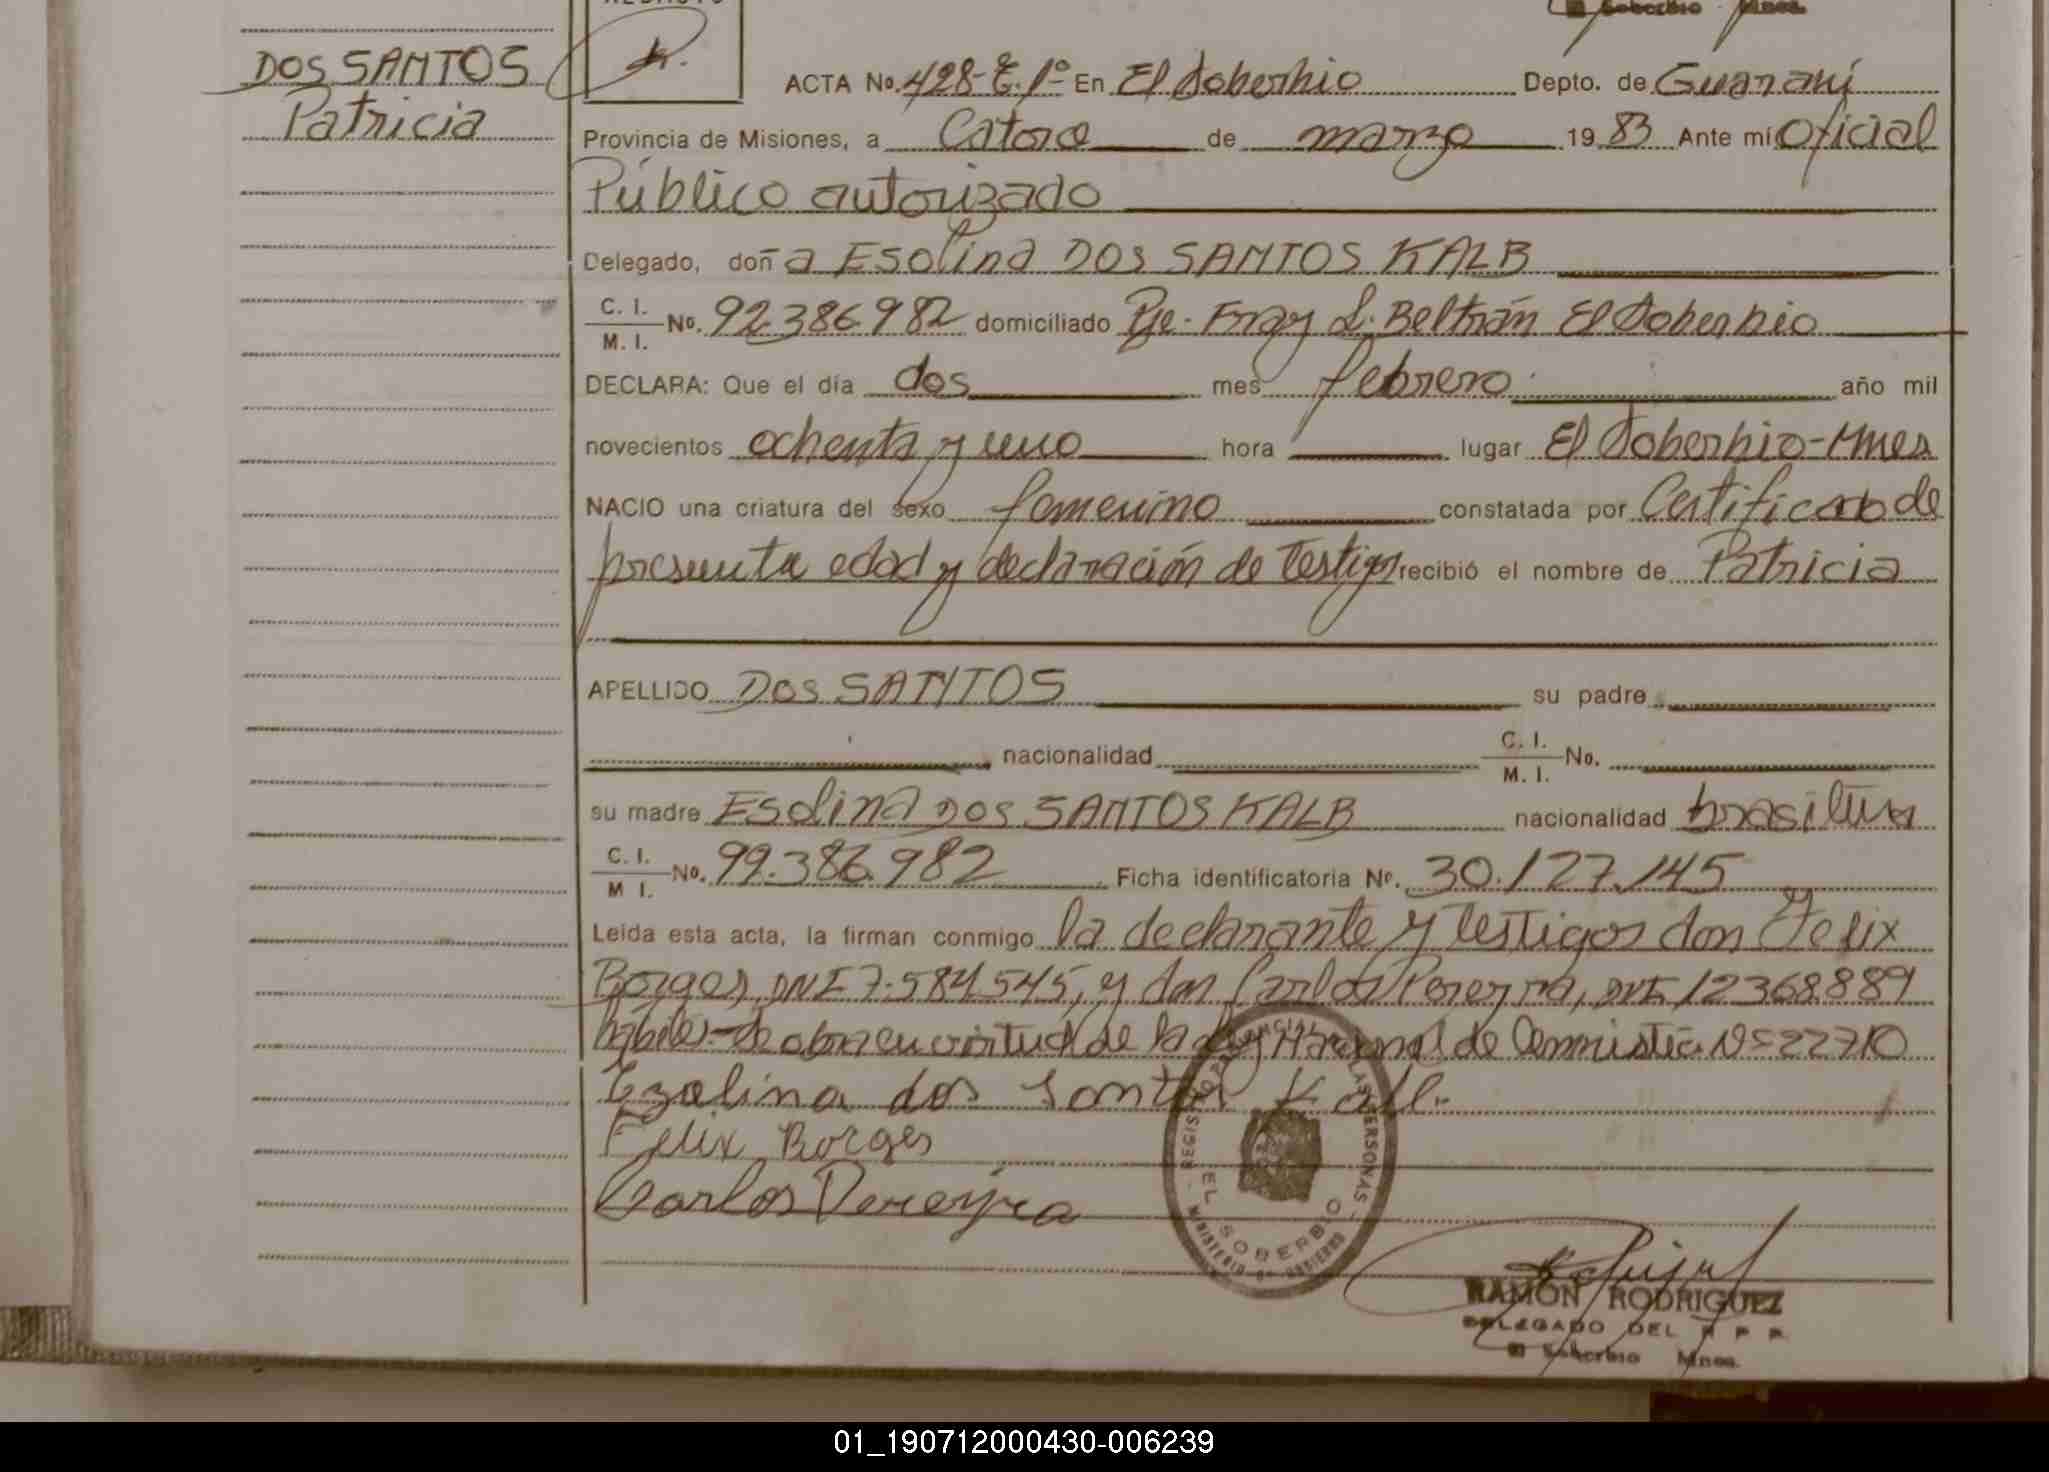 El Soberbio Mnes.
DOS SANTOS
Patricia
ACTA No. 428-E.1º En El Soberbio Depto. de Guaraní
Provincia de Misiones, a Catorce de marzo 19 83 Ante mí Oficial
Público autorizado
Delegado, doña Esolina DOS SANTOS KALB
C. I.
M. I. No. 92.386.982 domiciliado Pje. Fray L. Beltrán El Soberbio
DECLARA: Que el día dos mes febrero año mil
novecientos ochenta y uno hora lugar El Soberbio-Mnes
NACIO una criatura del sexo femenino constatada por Certificado de
presunta edad y declaración de testigos recibió el nombre de Patricia
APELLIDO DOS SANTOS su padre
nacionalidad C. I.
M. I. No.
su madre Esolina DOS SANTOS KALB nacionalidad brasilera
C. I.
M I. No. 99.386.982 Ficha identificatoria Nº. 30.127.145
Leida esta acta, la firman conmigo la declarante y testigos don Felix
Borges, DNI 7.584.545, y don Carlos Pereyra, DNI 12368889
hábiles.- Se labra en virtud de la Ley Nacional de Amnistía Nº 22710
Ezolina dos Santos Kalb
Felix Borges
Carlos Pereyra
REGISTRO PROVINCIAL DE LAS PERSONAS
EL SOBERBIO
MINISTERIO DE GOBIERNO
RAMON RODRIGUEZ
DELEGADO DEL R P P.
El Soberbio Mnes.
01_190712000430-006239